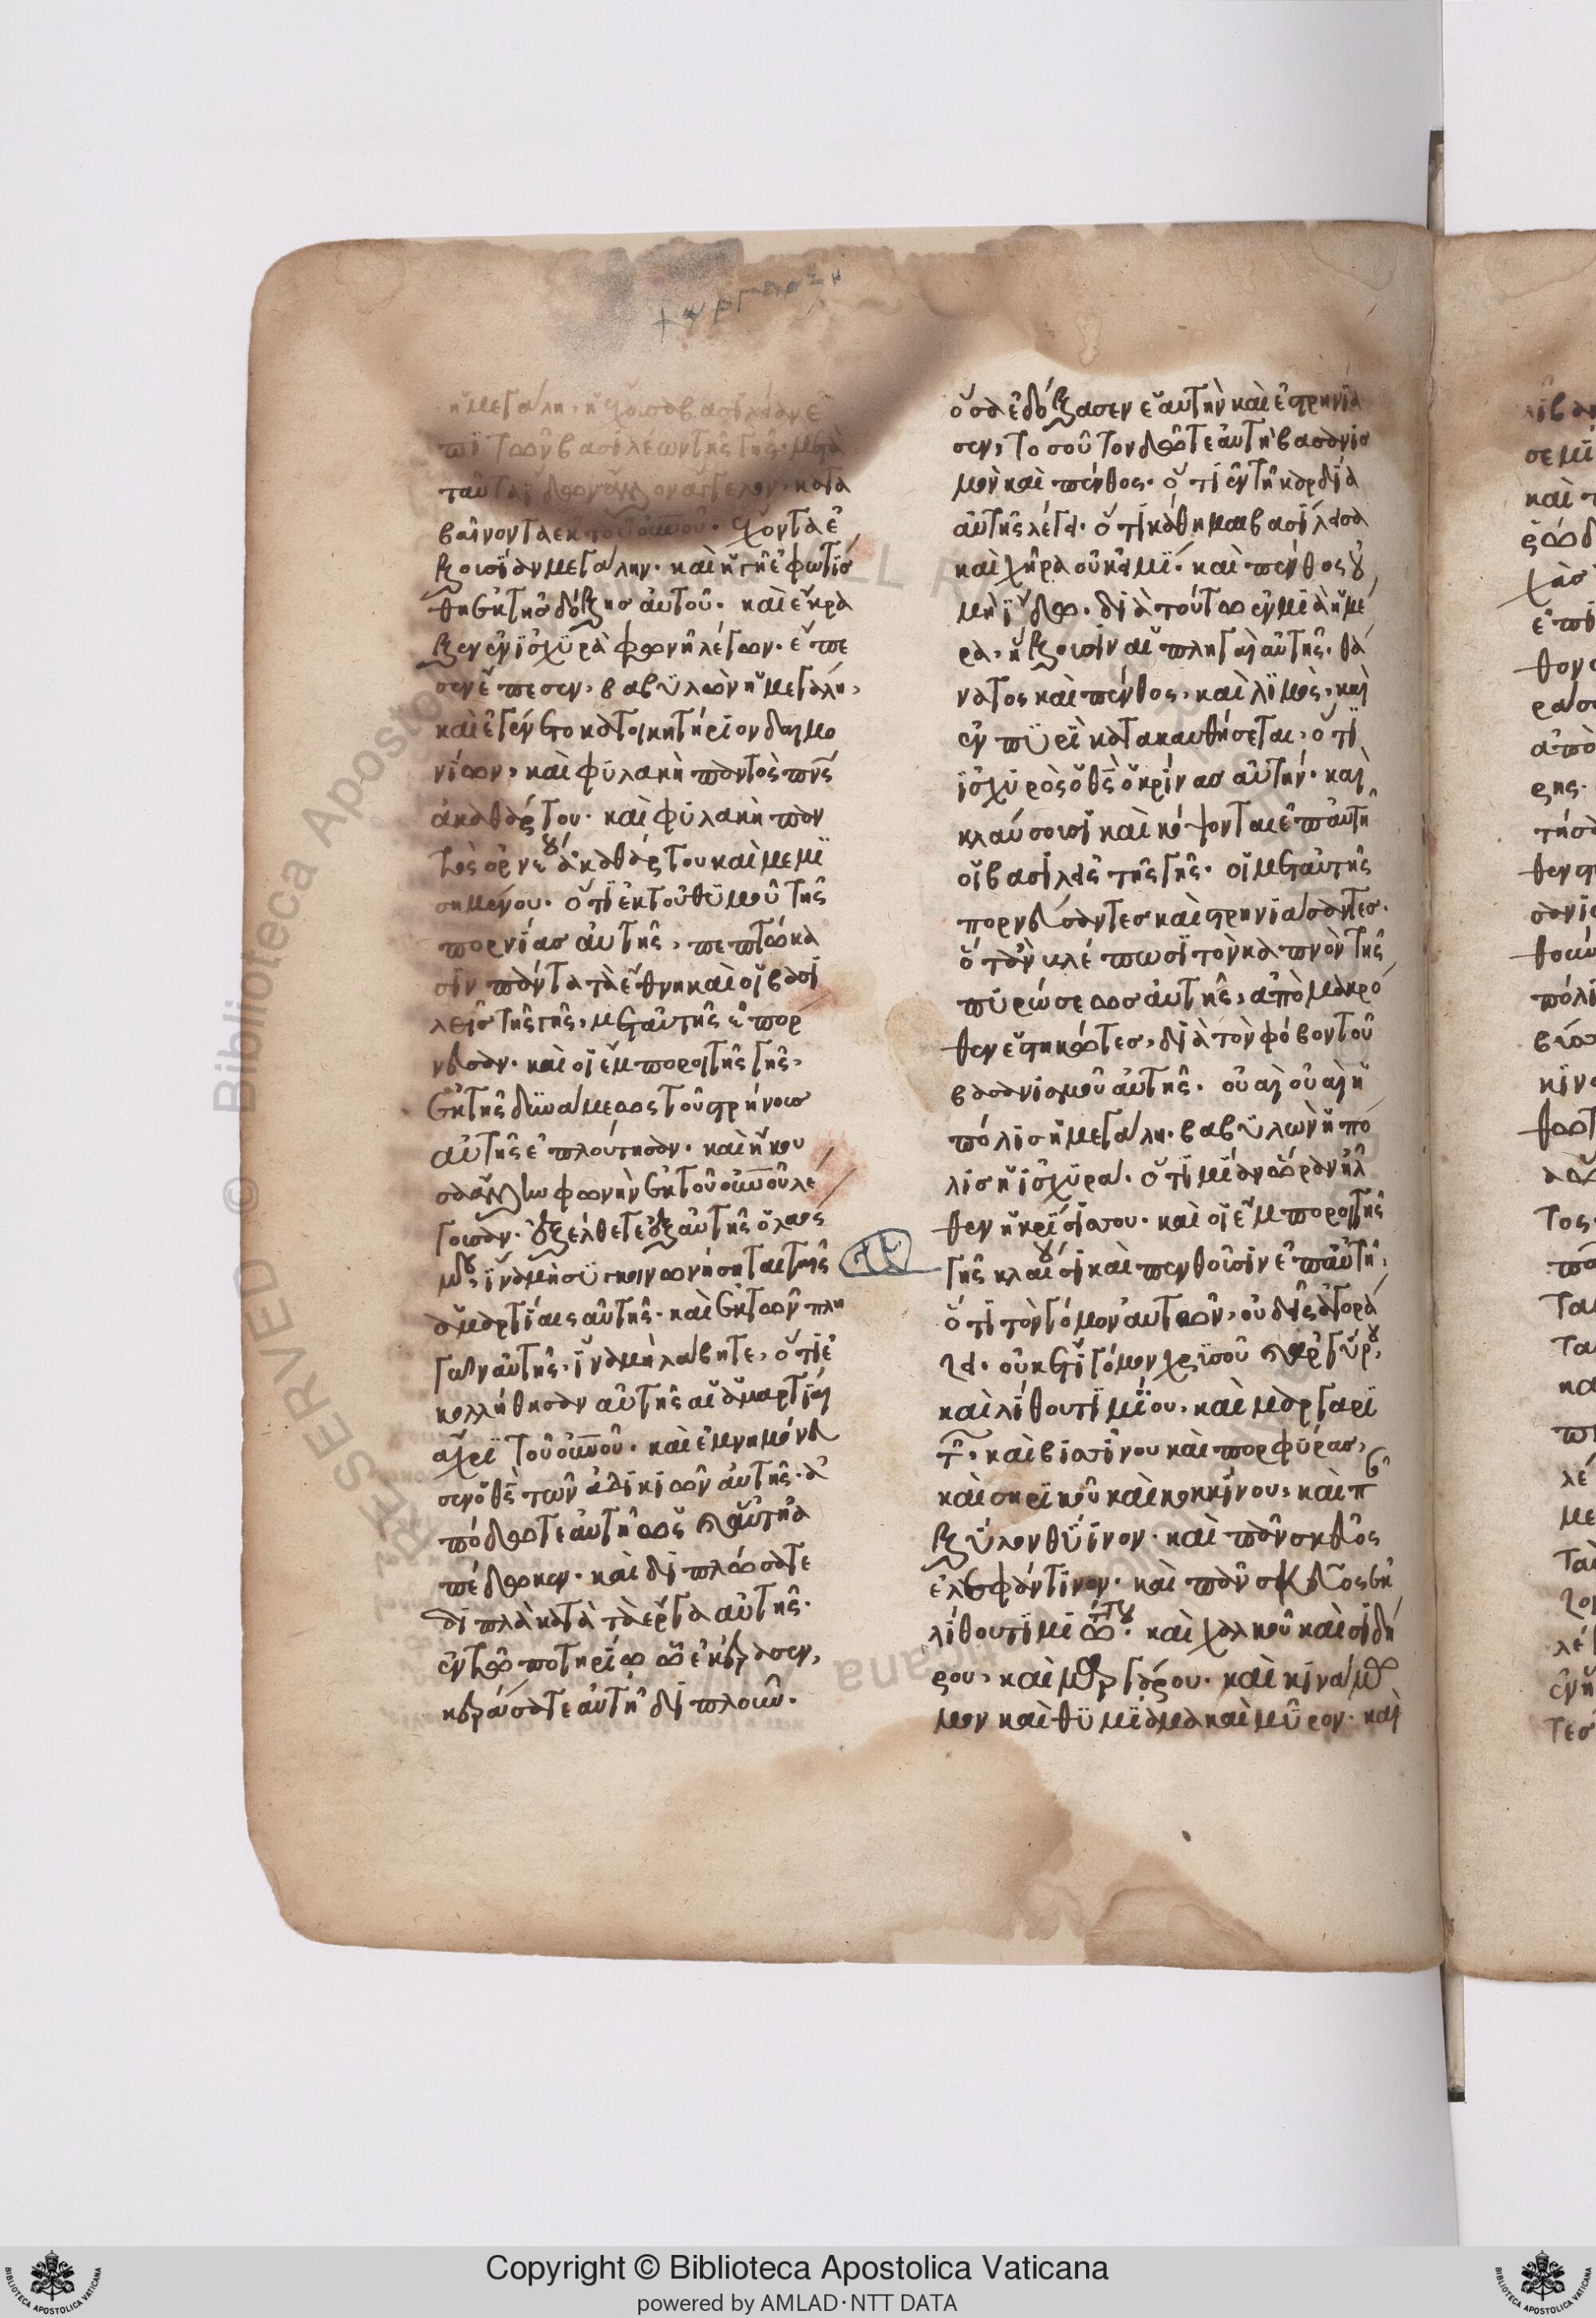 ἡ μεγάλη, ἡ ἔχουσα βασιλείαν ἐ
πὶ τῶν βασιλέων τῆς γῆς· μετὰ
ταῦτα ἴδων ἄλλον ἄγγελον, κατα
βαίνοντα ἐκ τοῦ οὐνοῦ. ἔχοντα ἐ
ξουσίαν μεγάλην. καὶ ἡ γῆ ἐφωτίσ
θη ἐκ τῆς δόξης αὐτοῦ. καὶ ἔκρα
ξεν ἐν ἰσχυρὰ φωνῆ λέγων. ἔπε
σεν ἔπεσεν, βαβυλὼν ἡ μεγάλη,
καὶ ἐγένετο κατοικητήριον δαιμο
νίων, καὶ φυλακὴ παντὸς πνς
ἀκαθάρτου. καὶ φυλακὴ παν
τὸς ὀρνέου ἀκαθάρτου καὶ μεμι
σημένου. ὅτι ἐκ τοῦ θυμοῦ τῆς
πορνίας αὐτῆς, πεπτώκα
σιν πάντα τὰ ἔθνη καὶ οἱ βασι
λεῖς τῆς γῆς, μετ αὐτῆς ἐπόρ
νευσαν. καὶ οἱ ἔμποροι τῆς γῆς,
ἐκ τῆς δυνάμεως τοῦ στρήνους
αὐτῆς ἐπλούτησαν. καὶ ἤκου
σα ἄλλην φωνὴν ἐκ τοῦ οὐνοῦ λέ
γουσαν. ἐξέλθετε ἐξ αὐτῆς ὁ λαός
μου, ἵνα μὴ συγκοινωνήσηται ταῖς
ἁμαρτίαις αὐτῆς. καὶ ἐκ τῶν πλη
γῶν αὐτῆς, ἵνα μὴ λάβητε, ὅτι ἐ
κολλήθησαν αὐτῆς αἱ ἁμαρτίαι
ἄχρι τοῦ οὐνοῦ. καὶ ἐμνημόνευ
σεν ὁ θς τῶν ἀδικιῶν αὐτῆς. ἀ
πόδωτε αὐτῆ ὡς καὶ αὐτὴ ἀ
πέδωκεν. καὶ διπλώσατε
διπλὰ κατὰ τὰ ἔργα αὐτῆς.
ἐν τῶ ποτηρίω ὧ ἐκέρασεν,
κεράσατε αὐτῆ διπλοῦν.
ὅσα ἐδόξασεν ἑαυτὴν καὶ ἐστρηνία
σεν, τοσοῦτον δῶτε αὐτῆ βασανισ
μὸν καὶ πένθος. ὅτι ἐν τῆ καρδία
αὐτῆς λέγει. ὅτι κάθημαι βασίλεισα
καὶ χῆρα οὐκ εἰμί. καὶ πένθος οὐ
μὴ ἴδω. διὰ τοῦτω ἐν μιὰ ἡμέ
ρα, ἥξουσιν αἱ πληγαὶ αὐτῆς. θά
νατος καὶ πένθος, καὶ λιμὸς, καὶ
ἐν πυρὶ κατακαυθήσεται, ὅτι
ἰσχυρὸς ὁ θς ὁ κρίνας αὐτήν. καὶ
κλαύσουσι καὶ κόψονται ἐπ αὐτῆ
οἱ βασιλεῖς τῆς γῆς. οἱ μετ αὐτῆς
πορνεύσαντες καὶ στρηνιάσαντες.
ὅταν βλέπωσι τὸν καπνὸν τῆς
πυρώσεως αὐτῆς, ἀπὸ μακρό
θεν ἑστηκότες, διὰ τὸν φόβον τοῦ
βασανισμοῦ αὐτῆς. οὐαὶ οὐαὶ ἡ
πόλις ἡ μεγάλη. βαβυλὼν ἡ πό
λις ἡ ἰσχυρά. ὅτι μίαν ὥραν ἦλ
θεν ἡ κρίσις σου. καὶ οἱ ἔμποροι τῆς
γῆς κλαύσουσι καὶ πενθοῦσιν ἐπ αὐτῆ,
ὅτι τὸν γόμον αὐτῶν, οὐδεὶς ἀγορά
ζει. οὐκέτι γόμον χρυσοῦ καὶ ἀργύρου,
καὶ λίθου τιμίου, καὶ μαργαρί
τ, καὶ βυσσίνου καὶ πορφύρας,
καὶ σηρικοῦ καὶ κοκκίνου, καὶ π
ξύλον θύϊνον. καὶ πᾶν σκεῦος
ἐλεφάντινον. καὶ πᾶν σκεῦος ἐκ
λίθου τιμιωτου. καὶ χαλκοῦ καὶ σιδή
ρου, καὶ μαργάρου. καὶ κινάμω
μον καὶ θυμίαμα καὶ μῦρον. καὶ